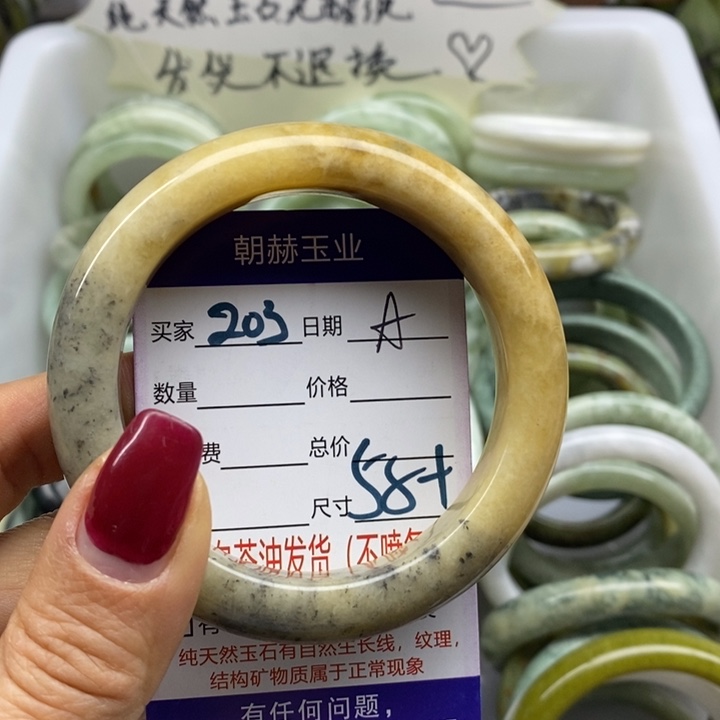 纯天然玉石无酸洗
售出不退换
朝赫玉业
买家 203 日期 A
数量 价格
费 总价
尺寸 58+
茶油发货(不喷
纯天然玉石有自然生长线，纹理，
结构矿物质属于正常现象
有任何问题，